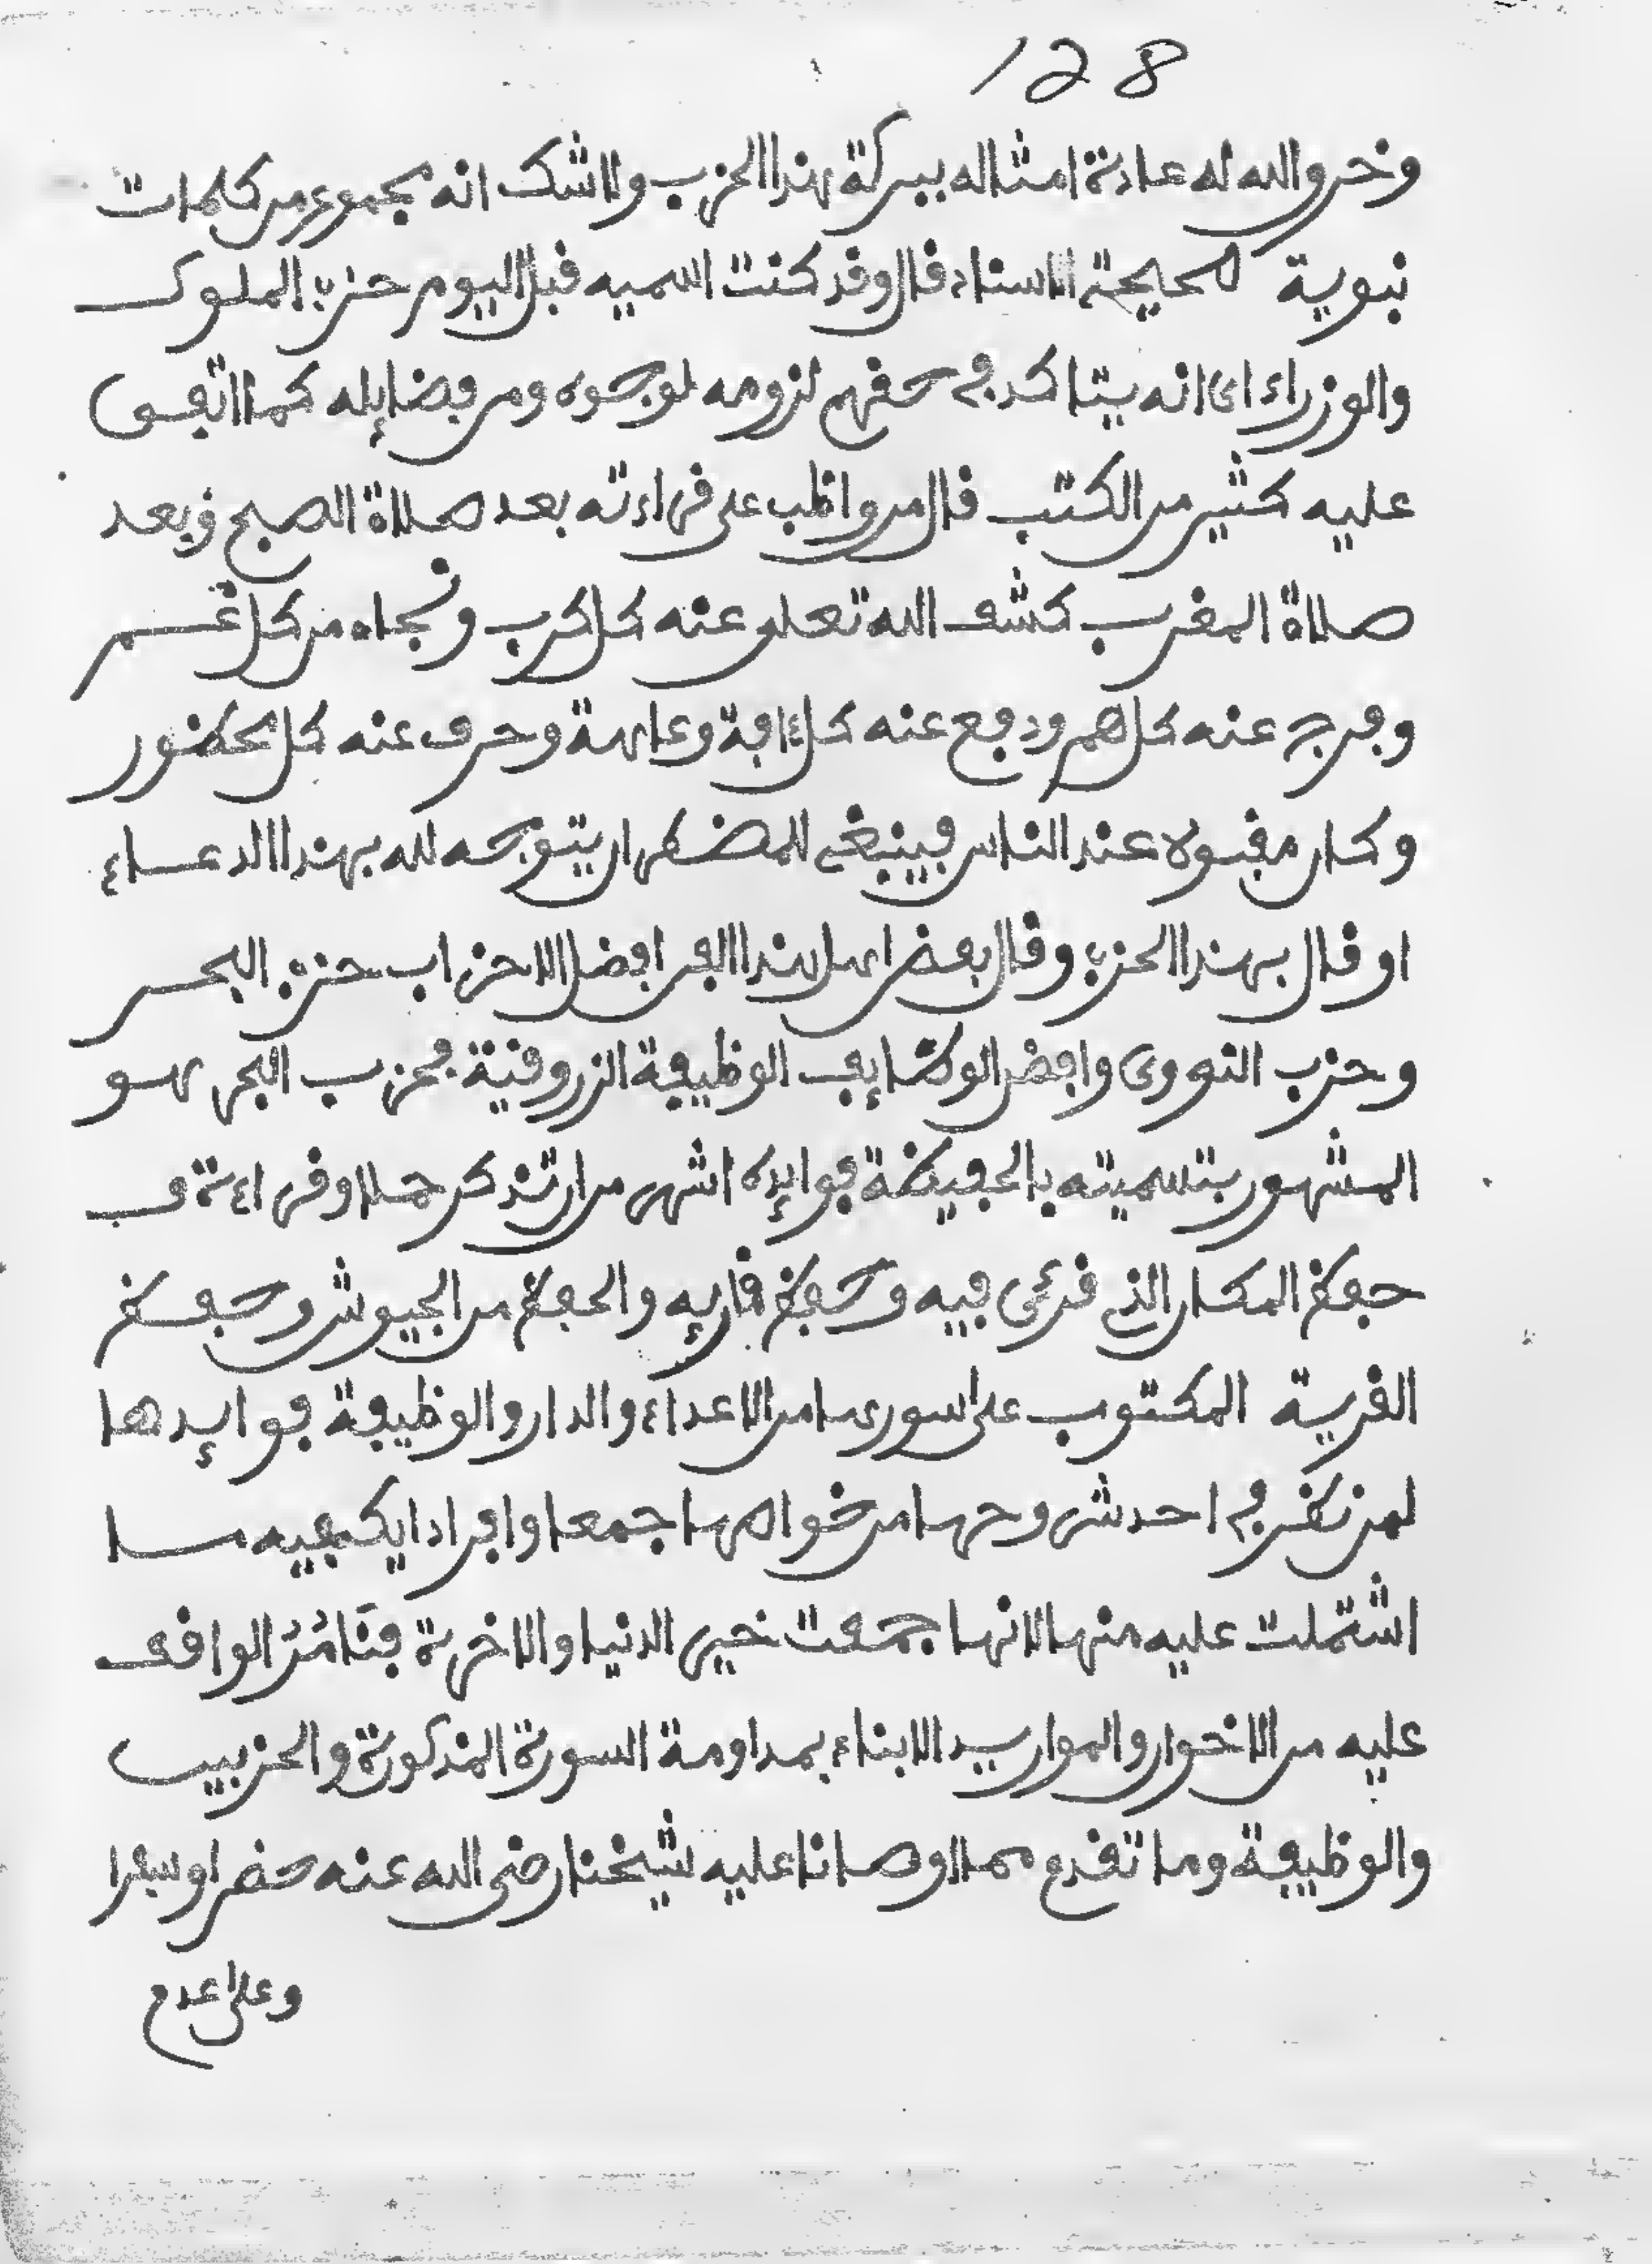 128
وخرو الله له عادة امثاله ببركة هذا الحزب ولا شك انه مجموع من كلمات
نبوية صحيحة الاسناد قال وقد كنت اسميه قبل اليوم حزب الملوك
والوزراء اى انه يتاكد في حقهم لزومه لوجوه ومن فضايله كما اتفق
عليه كثير من الكتب قال من واظب على قراءته بعد صلاة الصبح وبعد
صلاة المغرب كشف الله تعلى عنه كل كرب ونجاه من كل غم
وفرج عنه كل هم ودفع عنه كل ءافة وعاهة وصرف عنه كل محضور
وكان مقبولا عند الناس فينبغي للمضطر ان يتوجه لله بهذا الدعاء
او قال بهذا الحزب وقال بعض اهل هذا الفن افضل الاحزاب حزب البحر
وحزب النووي وافضل الوظايف الوظيفة الزروقية فحزب البحر هو
المشهور بتسميته بالحفيظة فوايده اشهر من ان تذكر حملا وقراءة و
حفظ المكان الذي قرئ فيه وحفظ قاريه والحفظ من الجيوش وحفظ
القرية المكتوب على سورها من الاعداء والدار والوظيفة فوايدها
لمن نظر في احد شروحها من خواصها جمعا وافرادا يكفيه ما
اشتملت عليه منها لانها جمعت خير الدنيا والاخرة فنامر الواقف
عليه من الاخوان والمواريد الابناء بمداومة السورة المذكورة والحزبين
والوظيفة وما تقدم مما اوصانا عليه شيخنا رضي الله عنه حضرا وسفرا
وعلى عدم